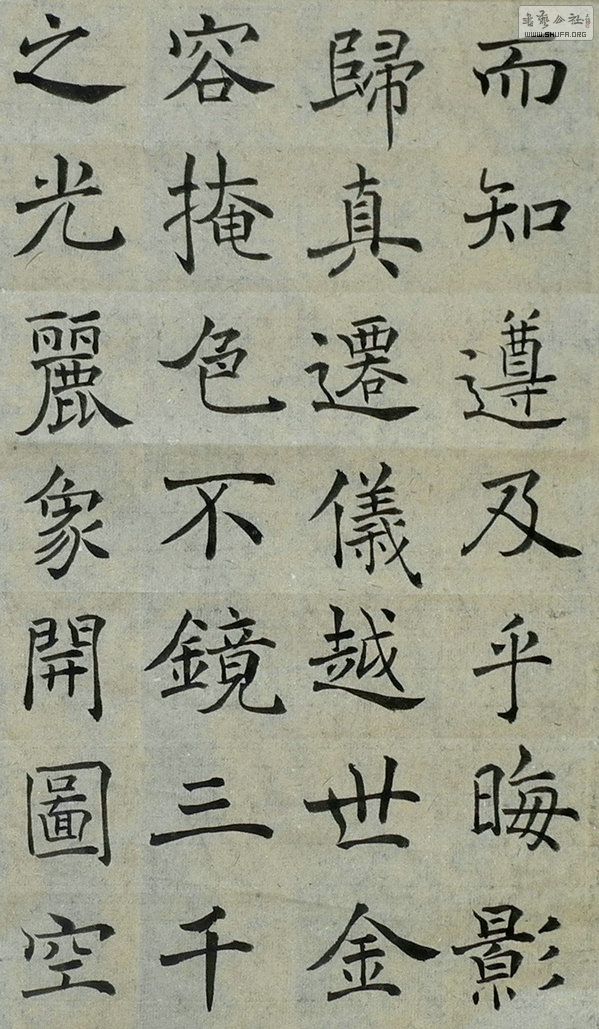 而知遵及乎晦影
歸真遷儀越世金
容掩色不鏡三千
之光麗象開圖空
書藝公社
WWW.SHUFA.ORG